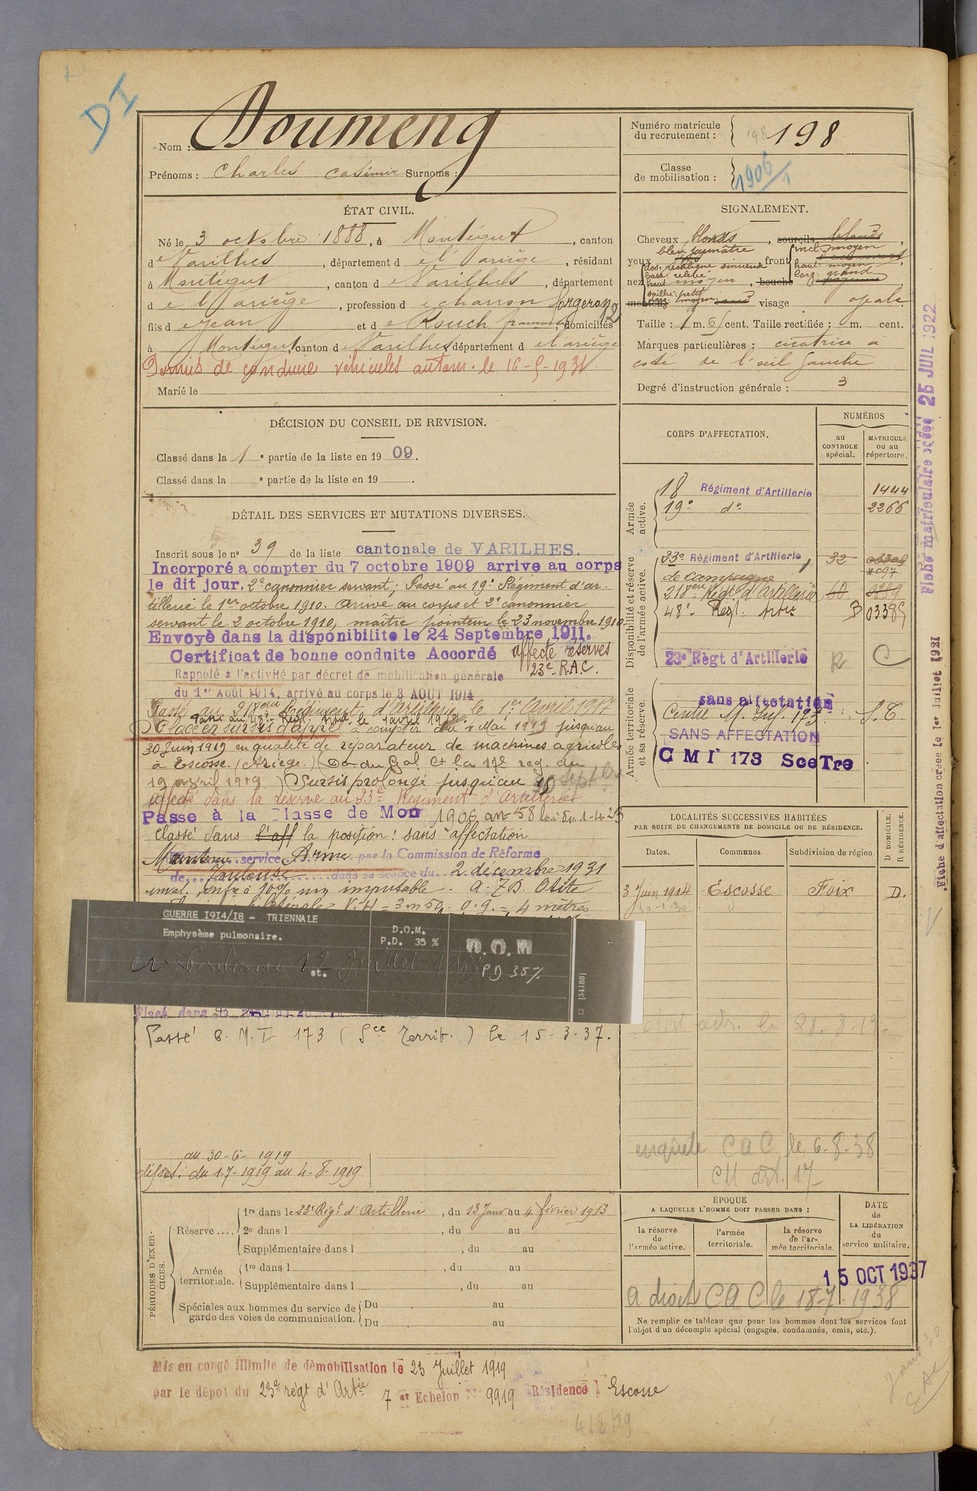 DI
Nom : Doumeng
Prénoms : Charles Casimir Surnoms :
Numéro matricule du recrutement : 198
Classe de mobilisation : 1906
ÉTAT CIVIL.
Né le 3 octobre 1888, à Montégut, canton
de Varilhes, département de l'Ariège, résidant
à Montégut, canton de Varilhes, département
de l'Ariège, profession de charron forgeron
fils de Jean et de Rouch domiciliés
à Montégut, canton de Varilhes département de l'Ariège
Permis de conduire véhicules autom. le 16-5-1931
Marié le
SIGNALEMENT.
Cheveux blonds, sourcils blonds,
yeux front
nez moyen, bouche
menton visage ovale
Taille : 1 m. cent. Taille rectifiée : m. cent.
Marques particulières : cicatrice à
coté de l'œil gauche
Degré d'instruction générale : 3
DÉCISION DU CONSEIL DE REVISION.
Classé dans la 1e partie de la liste en 1909.
Classé dans la e partie de la liste en 19
DÉTAIL DES SERVICES ET MUTATIONS DIVERSES.
Inscrit sous le no 39 de la liste cantonale de VARILHES.
Incorporé a compter du 7 octobre 1909 arrive au corps
le dit jour. 2e canonnier servant; Passé au 19e Régiment d'ar-
tillerie le 1er octobre 1910. arrivé au corps et 2e canonnier
servant le 2 octobre 1910, maitre pointeur le 23 novembre 1910
Envoyé dans la disponibilité le 24 Septembre 1911.
Certificat de bonne conduite Accordé affecté réserves
23e R.A.C.
Rappelé à l'activité par décret de mobilisation générale
du 1er Août 1914, arrivé au corps le 3 AOUT 1914
Passé au Régiment d'Artillerie le 1er avril 1917
Placé en sursis d'appel à compter du 1 Mai 1919 jusqu'au
30 Juin 1919 en qualité de réparateur de machines agricoles
à Escosse (Ariège.)
19 avril 1919.) Sursis prolongé jusqu'au
affecté dans la réserve au 23e Régiment d'artillerie
Passe à la Classe de Mob 1906 art 58 loi du 1-4-23
Classé dans l'aff la position : sans affectation
Maintenu service Armé par la Commission de Réforme
de Toulouse dans sa séance du 2 décembre 1931
inval. infre à 10% non imposable
GUERRE 1914/18 - TRIENNALE
Emphysème pulmonaire.
D.O.M.
P.D. 35 %
D.O.M
PD 35%
[34188]
Passé C.M.I 173 (Sce Territ.) le 15-3-37.
au 30-6-1919
du 1-7-1919 au 4-8-1919
CORPS D'AFFECTATION.
NUMÉROS
au CONTROLE spécial.
MATRICULE ou au répertoire.
Armée active.
18 Régiment d'Artillerie 1444
19e do 2266
Disponibilité et réserve de l'armée active.
23e Régiment d'Artillerie, 32
de campagne
210 Régt d'Artillerie 60
48e Regt. Artie
23e Règt d'Artillerie R C
Armée territoriale et sa réserve.
sans affectation
SANS AFFECTATION
C M I 173 Sce Tre
LOCALITÉS SUCCESSIVES HABITÉES
PAR SUITE DE CHANGEMENTS DE DOMICILE OU DE RÉSIDENCE.
Dates. Communes Subdivision de région. D. DOMICILE. R. RÉSIDENCE.
3 Juin 1914 Escosse Foix D.
enquête CAC le 6-8-38
CM art. 17
PÉRIODES D'EXERCICES.
Réserve.... 1re dans le 23e Régt d'Artillerie, du 13 Janv au 4 février 1913
2e dans l , du au
Supplémentaire dans l , du au
Armée territoriale. 1re dans l , du au
Supplémentaire dans l , du au
Spéciales aux hommes du service de garde des voies de communication. Du au
Du au
ÉPOQUE
A LAQUELLE L'HOMME DOIT PASSER DANS :
la réserve de l'armée active.
l'armée territoriale.
la réserve de l'armée territoriale.
DATE de LA LIBÉRATION du service militaire.
15 OCT 1937
a droit CAC le 18-7-1938
Ne remplir ce tableau que pour les hommes dont les services font
l'objet d'un décompte spécial (engagés, condamnés, omis, etc.).
Mis en congé illimité de démobilisation le 23 Juillet 1919
par le dépôt du 23e régt d'Artie 7 er Echelon No 9919 Résidence : Escosse
4/8/19
Fiche matriculaire créée 25 JUIL 1922
Fiche d'affectation créée le 1er Juillet 1921